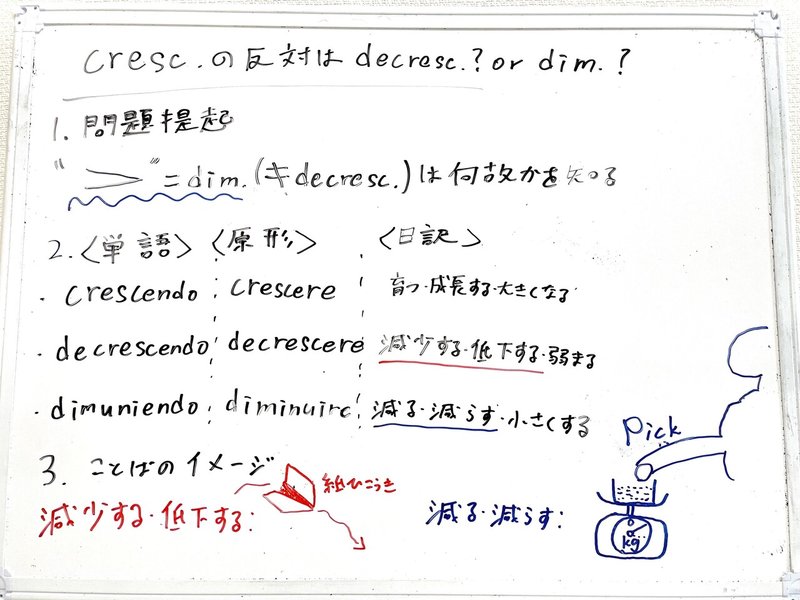 cresc.の反対はdecresc.?or dim.?
1.問題提起
"＞"=dim.(キdecresc.)は何故かを知る
2.〈単語〉〈原形〉〈日訳〉
・crescendo crescere 育つ・成長する・大きくなる
・decrescendo decrescere 減少する・低下する・弱まる
・dimuniendo diminuire 減る・減らす・小さくする
3. ことばのイメージ
紙ひこうき
減少する・低下する:
Pick
減る・減らす:
kg